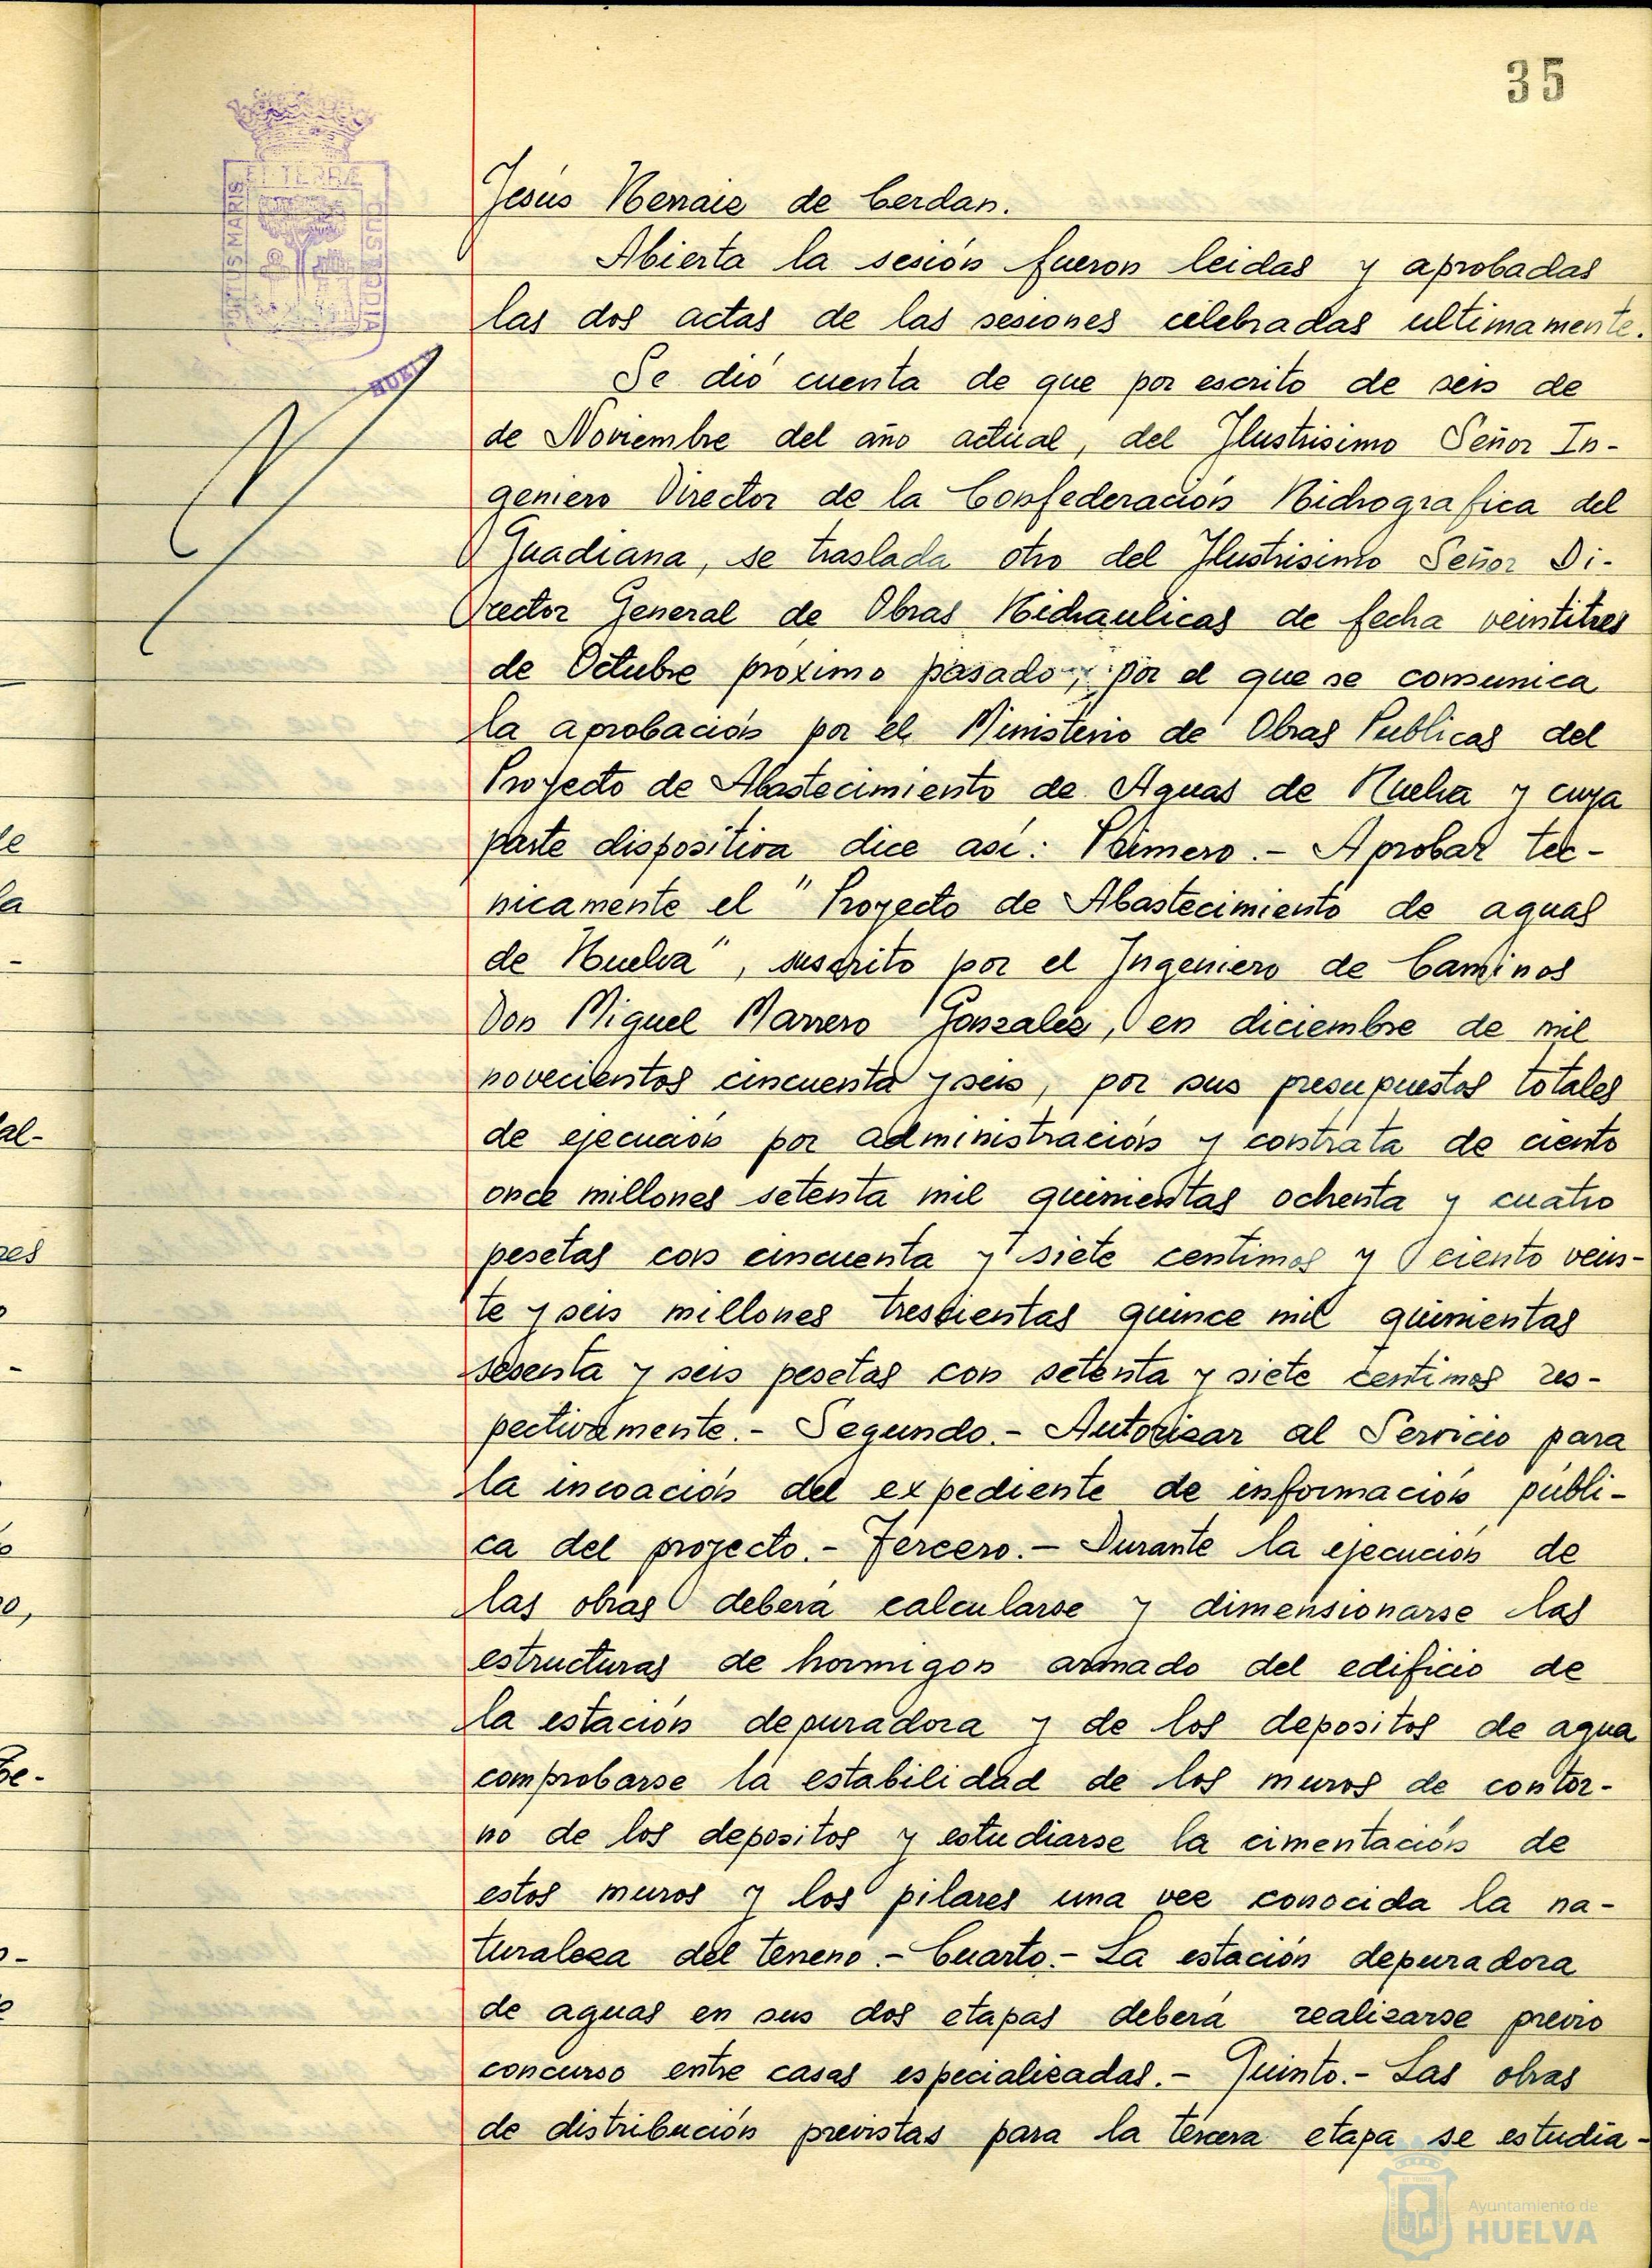 35
ET TERRÆ
PORTUS MARIS
CUSTODIA
HUEL
Jesús Henaiz de Cerdan.
Abierta la sesión fueron leidas y aprobadas
las dos actas de las sesiones celebradas ultimamente.
Se dió cuenta de que por escrito de seis de
de Noviembre del año actual, del Ilustrisimo Señor In-
geniero Director de la Confederación Hidrografica del
Guadiana, se traslada otro del Ilustrisimo Señor Di-
rector General de Obras Hidraulicas de fecha veintitres
de Octubre próximo pasado, por el que se comunica
la aprobación por el Ministerio de Obras Publicas del
Proyecto de Abastecimiento de Aguas de Huelva y cuya
parte dispositiva dice así: Primero.- Aprobar tec-
nicamente el "Proyecto de Abastecimiento de aguas
de Huelva", suscrito por el Ingeniero de Caminos
Don Miguel Marrero Gonzalez, en diciembre de mil
novecientos cincuenta y seis, por sus presupuestos totales
de ejecución por administración y contrata de ciento
once millones setenta mil quinientas ochenta y cuatro
pesetas con cincuenta y siete centimos y ciento vein-
te y seis millones trescientas quince mil quinientas
sesenta y seis pesetas con setenta y siete centimos res-
pectivamente.- Segundo.- Autorizar al Servicio para
la incoación del expediente de información públi-
ca del proyecto.- Tercero.- Durante la ejecución de
las obras deberá calcularse y dimensionarse las
estructuras de hormigon armado del edificio de
la estación depuradora y de los depositos de agua
comprobarse la estabilidad de los muros de contor-
no de los depositos y estudiarse la cimentación de
estos muros y los pilares una vez conocida la na-
turaleza del terreno.- Cuarto.- La estación depuradora
de aguas en sus dos etapas deberá realizarse previo
concurso entre casas especializadas.- Quinto.- Las obras
de distribución previstas para la tercera etapa se estudia-
Ayuntamiento de
HUELVA